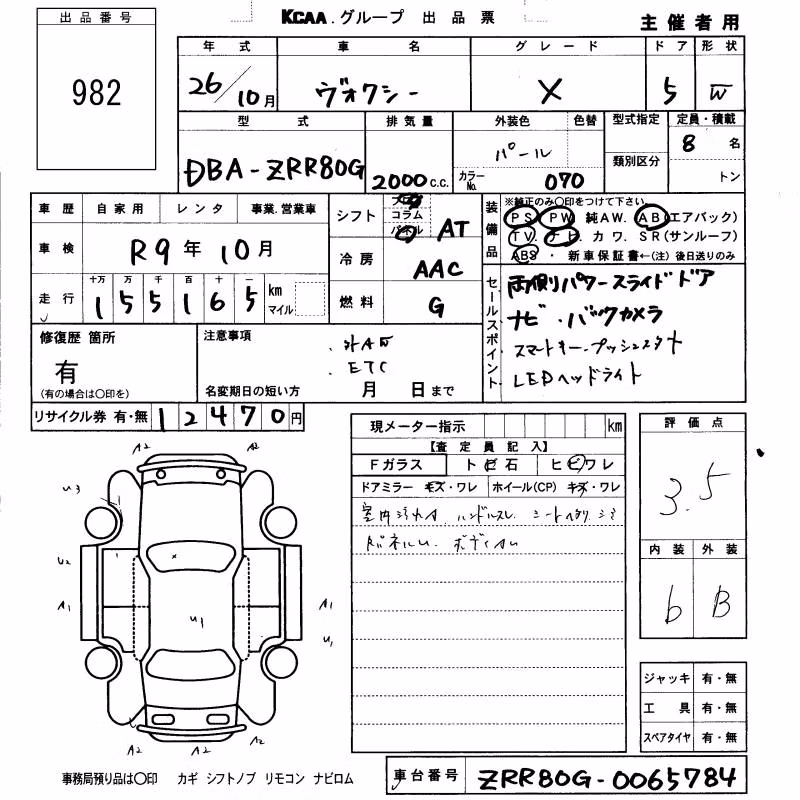 出品番号
982
KCAA.グループ 出品票
主催者用
年式 車名 グレード ドア 形状
26/10月 ヴォクシー X 5 W
型式 排気量 外装色 色替 型式指定 定員・積載
DBA-ZRR80G 2000c.c. パール カラーNo. 070 類別区分 8名 トン
車歴 自家用 レンタ 事業.営業車
車検 R9年10月
走行 十万 万 千 百 十 km マイル
1 5 5 1 6 5
シフト フロア コラム パネル AT
冷房 AAC
燃料 G
装備品 ※純正のみ○印をつけて下さい。
PS. PW. 純AW. AB(エアバック)
TV. ナビ. カワ. SR(サンルーフ)
ABS ・ 新車保証書←(注)後日送りのみ
セールスポイント
両側パワースライドドア
ナビ・バックカメラ
スマートキー・プッシュスタート
LEDヘッドライト
修復歴 箇所
有
(有の場合は○印を)
注意事項
ETC
名変期日の短い方 月 日まで
リサイクル券 有・無 12470円
現メーター指示 km
【査定員記入】
Fガラス トビ石 ヒビワレ
ドアミラー キズ・ワレ ホイール(CP) キズ・ワレ
評価点
3.5
内装 外装
b B
ジャッキ 有・無
工具 有・無
スペアタイヤ 有・無
A2 A2
U3
U2
A1 U1 A1
U1
A2 A2 A2
事務局預り品は○印 カギ シフトノブ リモコン ナビロム
車台番号 ZRR80G-0065784